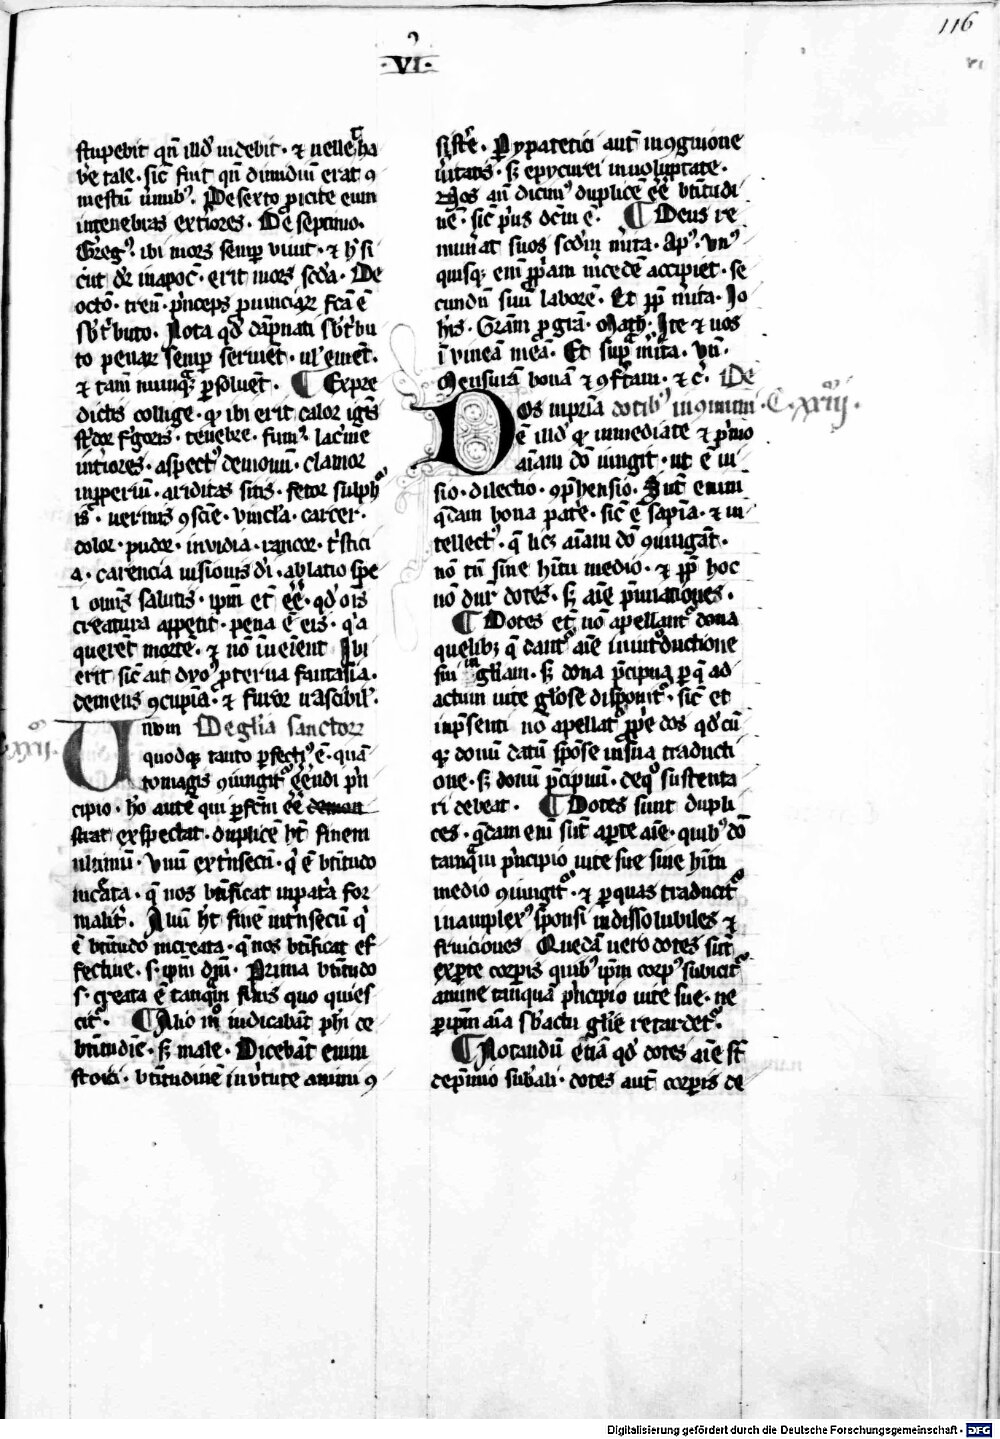 116
·VI·
stupebit qn̄ illd' videbit· ⁊ vellet ha
b'e tale· sic̄ fuit qn̄ dimidiū erat ꝯ
mestū v'mib⁹· De sexto ꝓicite eum
in tenebras ext'iores· De septimo·
Greg⁹· ibi mors semp viuit· ⁊ h' si
cut dr̄ in apoc̄· erit mors scd̄a· De
octō· tren̄· p'nceps ꝓuinciaꝝ fcā ē
sb' t'buto· Nota qd' dāpnati sb' t'bu
to penaꝝ semp seruiēt· ul' emēt·
⁊ tam̄ nunqᵃ ꝑsoluēt· ¶ Ex p̄re
dictis collige· qꝫ ibi erit calor igīs
st'dor f'goris· tenebre· fum⁹· lac'me
int'iores· aspect⁹ demonū· clamor
imꝓperiū· ariditas sitis· fetor sulph
is· uermis ꝯscīe· vincl'a· carcer·
dolor· pudor· invidia· rancor· t'stici
a· carencia uisionis dī· ablatio spe
i om̄is salutis· ip̄m et eē· qd' oīs
creatura appetit· pena ē eis· q'a
querent mortē· ⁊ nō inueient Ibi
erit sic̄ ait dyo⁹ ꝓterua fantasia·
demens ꝯcupīa· ⁊ furor irascibil'·
Unum De gl'ia sanctorꝝ
quodqꝫ tanto ꝑfecti⁹ ē· quā
to magis ꝯiungit' eēndi p'n
cipio· hō autē qui ꝑfcm̄ eē demon
strat exspectat· duplicē ht̄ finem
ultimū· Vnū ext'nsecū· q' ē bt̄itudo
increata· q̄ nos bt̄ificat in patᵃ for
malit'· Aliū ht̄ finē int'nsecū q'
ē bt̄itudo increata· q̄ nos bt̄ificat ef
fectiue· s· ip̄m dm̄· Prima bt̄itudo
s· creata ē tanqᵃm finis quo quies
cit'· ¶ Alio mō iudicabāt ph̄i de
bt̄itudīe· sꝫ male· Dicebāt enim
stoici· bt̄itudinē in v'tute animi ꝯ
sist'e· Pypatetici aut̄ in ꝯgnitione
v'itatis· sꝫ epycurei in uoluptate·
Nos aū dicim⁹ duplicē eē bt̄itudi
nē· sic̄ p'us dcm̄ ē· ¶ Deus re
mun'at suos scd'm m'ita· Ap⁹· Vn⁹
quisqꝫ enī ꝓp'am m'cedē accipiet· se
cundū suū laborē· Et ꝓp m'ita· Io
h'is· Gram ꝓ grā· Math· Ite ⁊ vos
ī vineā meā· Et supᵃ m'ita· Vn̄·
Mensurā bonā ⁊ ꝯf'tam· ⁊ c'· De
Dos inp'ria dotib⁹ in ꝯmuni· C· xxiiij·
ē illd' qd' immediate ⁊ p'mo
aīam dō iungit· ut ē ui
sio· dilectio· ꝯp̄hensio· Sūt enim
q̄dam bona patᵉ· sic̄ ē sapīa· ⁊ in
tellect⁹· q̄ licꝫ aīam dō ꝯiungāt·
nō tn̄ sine hītu medio· ⁊ ꝓp hoc
nō dnr̄ dotes· sꝫ aīe p'miatiōnes·
¶ Dotes etī nō apellant' dona
quelibꝫ q̄ dant' aīe in int'oductione
sui in gl'iam· sꝫ dona p'ncipua ꝑ q̄ ad
actum uite gl'ose disponit'· sic̄ et
in p̄senti nō apellat' ꝓp'e dos qd'cū
qꝫ donū datū spōse in sua traducti
one· sꝫ donū p'ncipuū· de q° sustenta
ri debeat· ¶ Dotes sunt dupli
ces· q̄dam enī sūt a parte aīe· quib⁹ dō
tanqᵃm p'ncipio uite sue sine hītu
medio ꝯiungit'· ⁊ ꝑ quas traducit'
in amplex⁹ spōnsi indissolubiles ⁊
fruiciones Quedā uero dotes sūt
ex ꝑte corꝑis quib⁹ ip̄m corp⁹ subicit'
anime tanquā p'ncipio uite sue· ne
ꝑ ip̄m aīa sb' actu gl'ie retardet'·
¶ Notandū etiā qd' dotes aīe st̄
de p̄mio sub'ali· dotes aut̄ corꝑis de